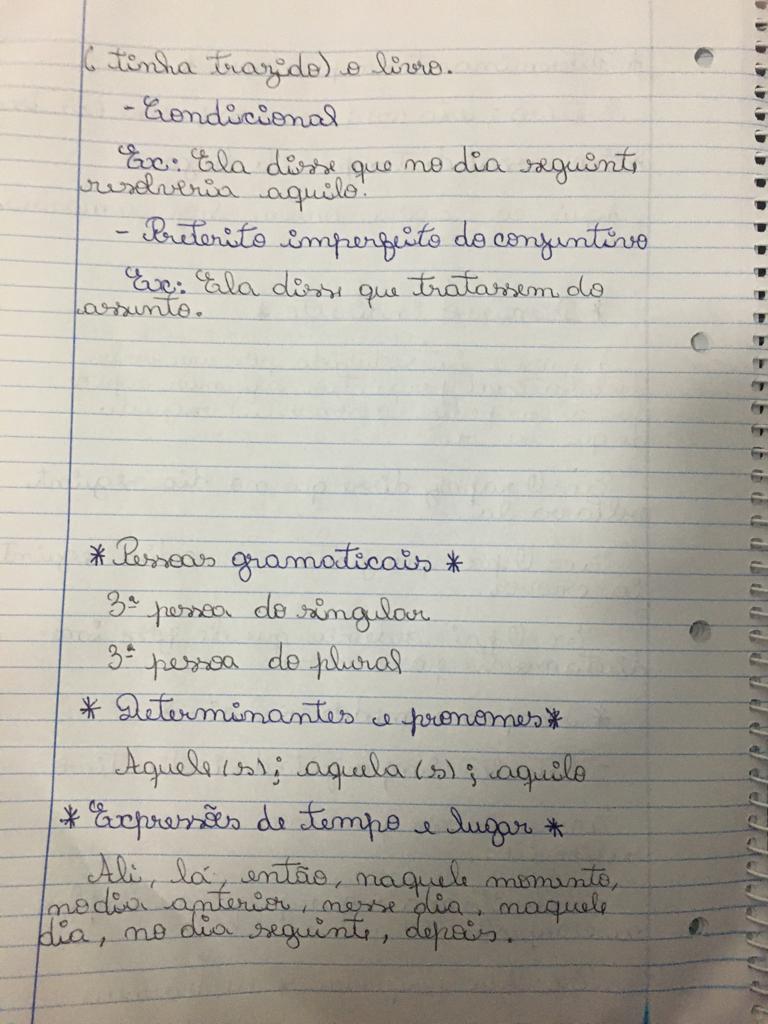 ( tinha trazido) o livro.
- Condicional
Ex: Ela disse que no dia seguinte
resolveria aquilo.
- Preterito imperfeito do conjuntivo
Ex: Ela disse que tratassem do
assunto.
* Pessoas gramaticais *
3ª pessoa do singular
3ª pessoa do plural
* Determinantes e pronomes *
Aquele (s); aquela (s); aquilo
* Expressões de tempo e lugar *
Ali, lá, então, naquele momento,
no dia anterior, nesse dia, naquele
dia, no dia seguinte, depois.